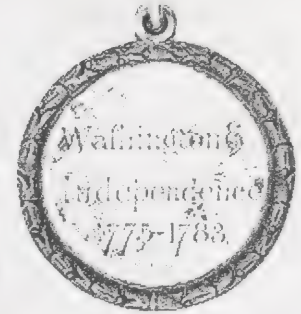 Waſhington &
Independence
1775-1783.